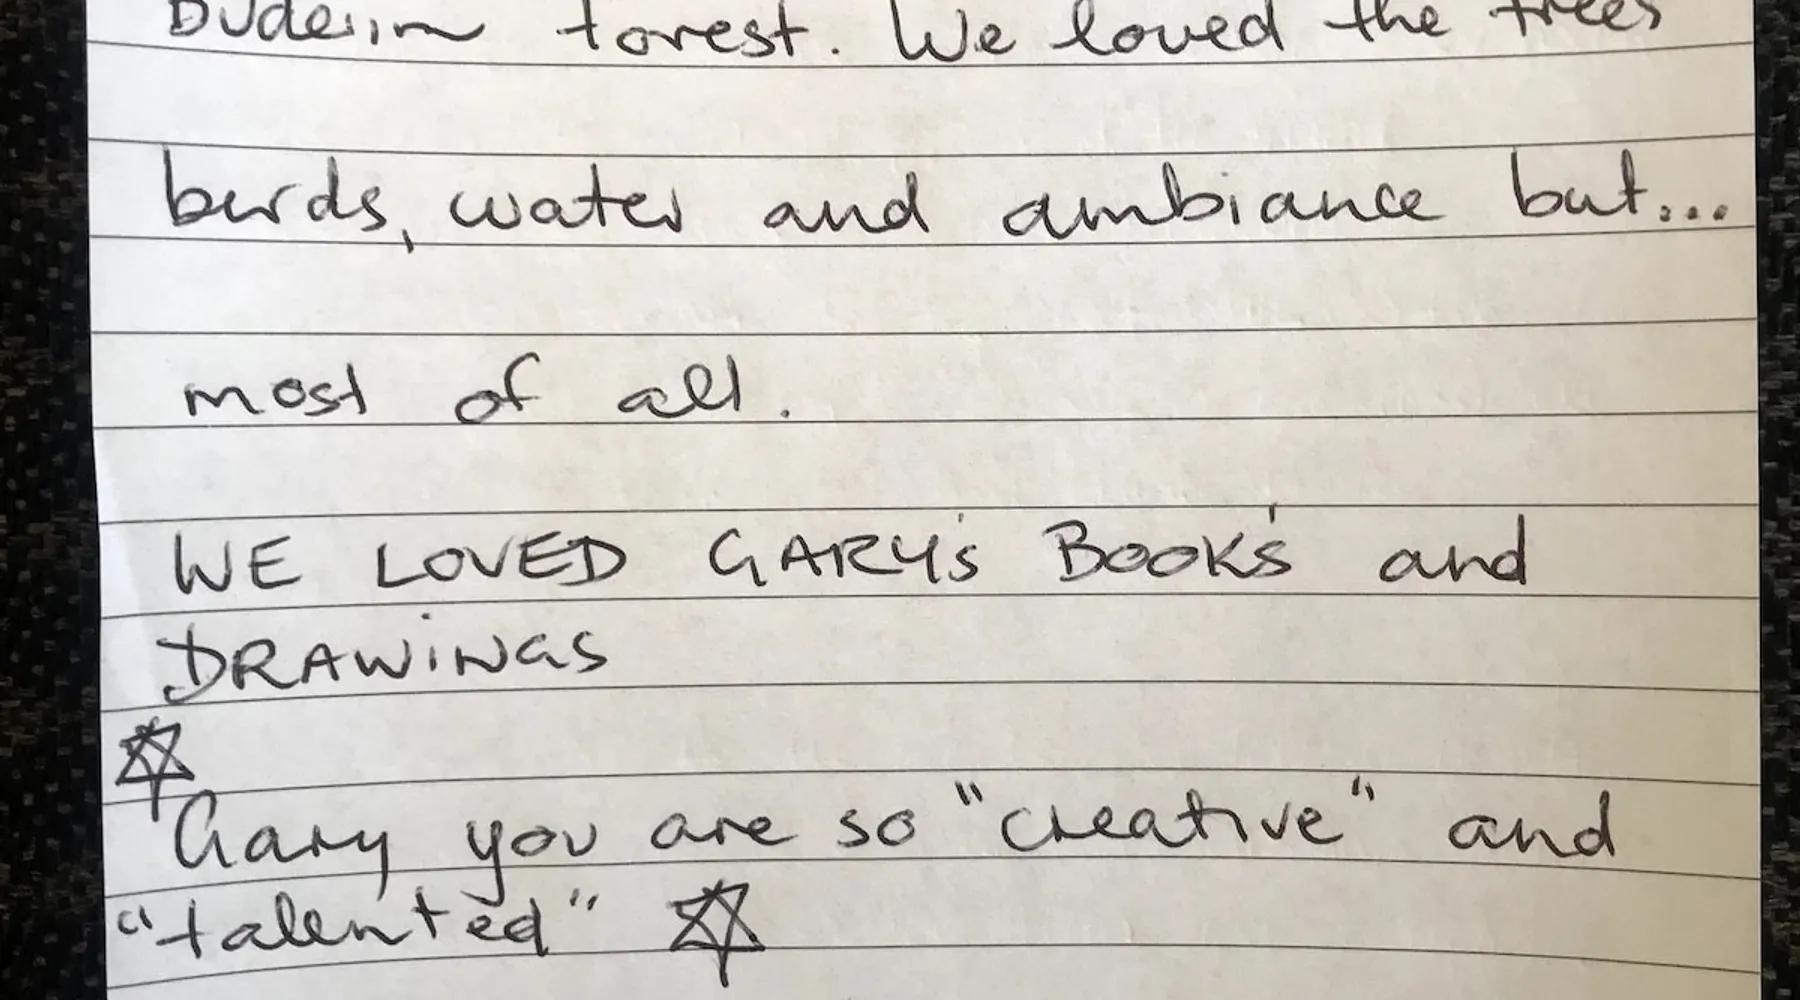 Buderim forest. We loved the trees
birds, water and ambiance but...
most of all.
WE LOVED GARY's BOOK's and
DRAWiNGS
Gary you are so "creative" and
"talented"